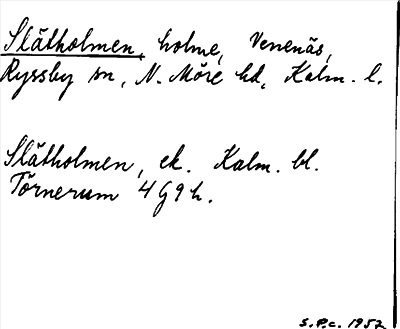 Slätholmen, holme, Venenäs,
Ryssby sn, N. Möre hd, Kalm. l.
Slätholmen, ek. Kalm. bl.
Törnerum 4G9h.
S.P.c. 1952